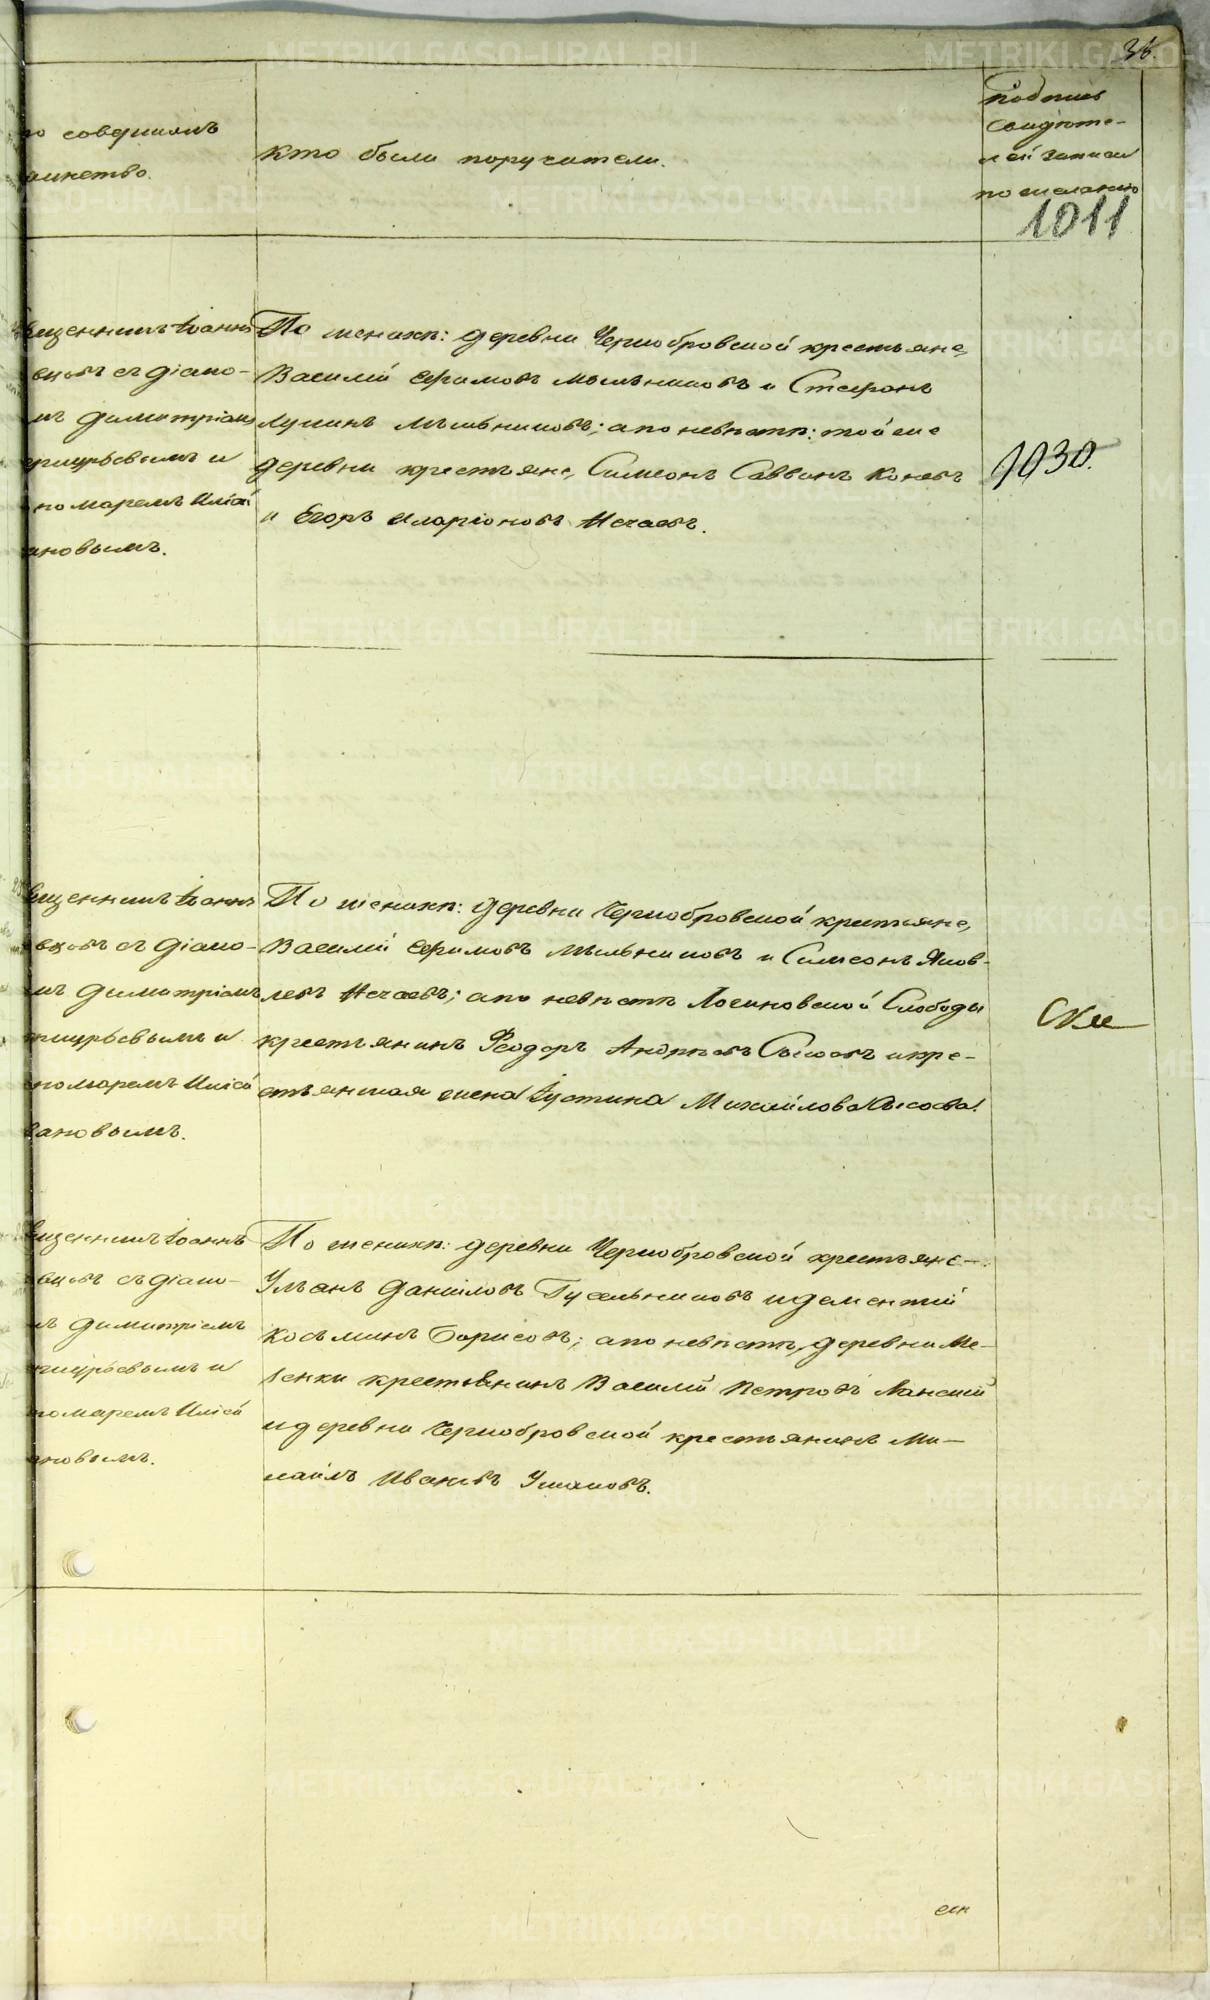 36.
кто совершалъ
таинство.
Кто были поручители.
Подпись
свидѣте-
лей записи
по желанію
1011
Священникъ Іоаннъ
съ діако-
Димитріемъ
и
пономаремъ
По женихѣ: деревни Чернобровской крестьяне,
Василій Ефимовъ Мыльниковъ и Стефанъ
Лукинъ Мыльниковъ; а по невѣстѣ: той же
деревни крестьяне, Симеонъ Саввинъ Коневъ
и Егоръ Иларіоновъ Нечаевъ.
1030.
Священникъ Іоаннъ
съ діако-
Димитріемъ
и
пономаремъ
По женихѣ: деревни Чернобровской крестьяне,
Василій Ефимовъ Мыльниковъ и Симеонъ Яков-
левъ Нечаевъ; а по невѣстѣ Логиновской Слободы
крестьянинъ Ѳеодоръ Андреевъ Сысоевъ и кре-
стьянская жена Іустина Михайлова Сысоева.
Священникъ Іоаннъ
съ діако-
Димитріемъ
и
пономаремъ
По женихѣ: деревни Чернобровской крестьяне—
Ульянъ Даниловъ Гусельниковъ и Дементій
Косьминъ Борисовъ; а по невѣстѣ, деревни Ме-
ленки крестьянинъ Василій Петровъ Ланскій
и деревни Чернобровской крестьянинъ Ми-
хаилъ Ивановъ Ушаковъ.
METRIKI.GASO-URAL.RU